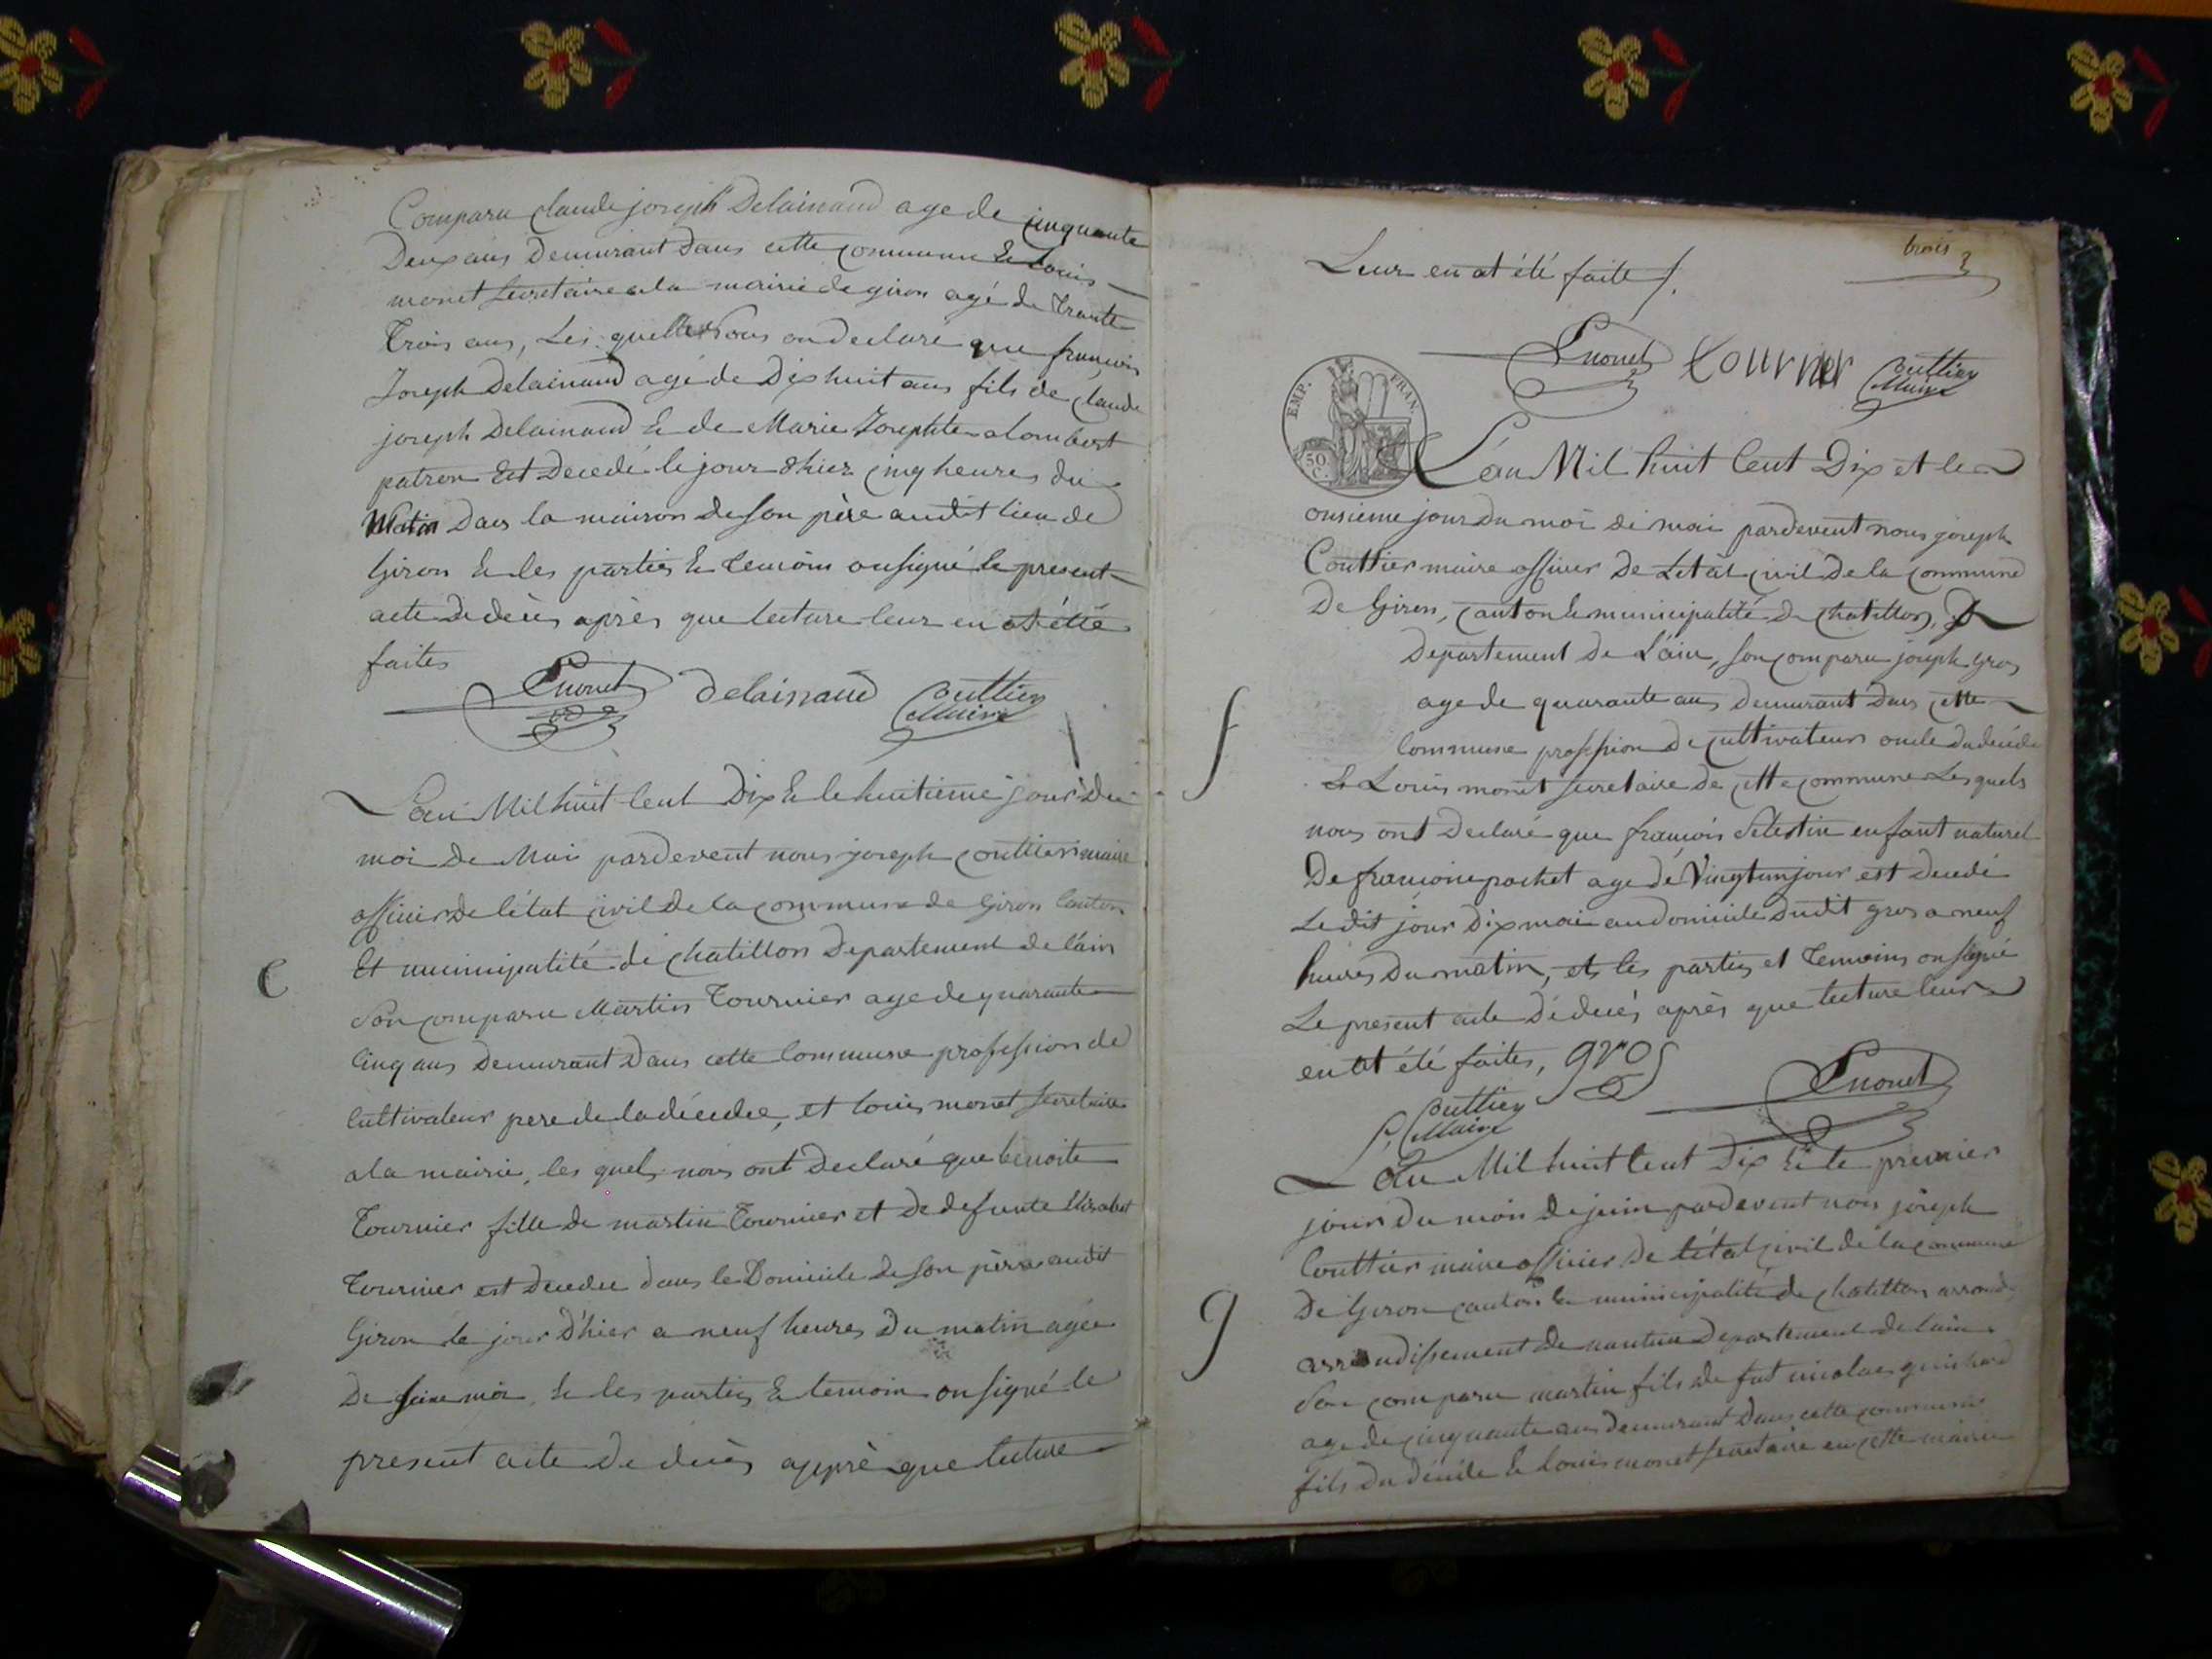 Comparu Claude joseph Delainaud age de cinquante
Deux ans Demurant dans cette commune & Louis
monet secretaire a la mairie de giron agé de Trante
Trois ans, Les quelles Nous on declaré que françois
Joseph Delainaud agé de Dix huit ans fils de Claude
joseph Delainaud & de Marie Josephte
patron Est Decedé le jour d'hier cinq heures du
Matin Dans la maison de son père audit lieu de
Giron & les parties & temoins on signé le present
acte de decès après que lecture leur en at été
faites
Lmonet delainaud Couttier
Maire
L'an Mil huit Cent Dix & le huitieme jour Du
moi de Mai pardevent nous joseph Couttier maire
officier de l'état civil de la commune de Giron Canton
Et municipalité de Chatillon Departement de l'ain
Son comparu Martin Tournier age de quarante
Cinq ans Demurant Dans cette Commune profession de
Cultivateur pere de la décedee, et Louis monet secretaire
a la mairie, les quels nous ont Declaré que benoite
Tournier fille de martin Tournier et de defunte Elisabet
Tournier est decedee dans le Domicile de son père audit
Giron le jour d'hier a neuf heures Du matin agée
De seize moi, & les parties & temoin on signé le
present acte De decès apprè que lecture
e
trois
Leur en at été faite
Lmonet tournier Couttier
Maire
EMP. FRAN.
50
C.
L'an Mil huit Cent Dix et le
onsieme jour du moi de mai pardevent nous joseph
Couttier maire officier De Letat civil De la Commune
De Giron, Canton & municipalité de Chatillon,
Departement De L'ain, son comparu joseph gros
age de quarante ans Demurant Dans cette
Commune profession de Cultivateur oncle du decédé
& Louis monet secretaire de cette commune Lesquels
nous ont Declaré que françois Selestin enfant naturel
De françoise pochet age de Vingt un jour est Decedé
Le dit jour Dix mai au domicile dudit gros a neuf
heures Du matin, et les parties et Temoins on signé
Le present acte Dé decés après que lecture leur
en at été faites, gros
Couttier Lmonet
Maire
f
L'an Mil huit Cent Dix & le premier
jour du mois de juin pardevent nous joseph
Couttier maire officier De l'état civil de la Commune
De Giron canton & municipalité de Chatillon arrond
arrondissement de nantua Departement de l'ain
Son comparu martin fils de fut nicolas
age de cinquante ans Demurant Dans cette commune
fils du décédé & Louis monet secretaire en cette mairie
g